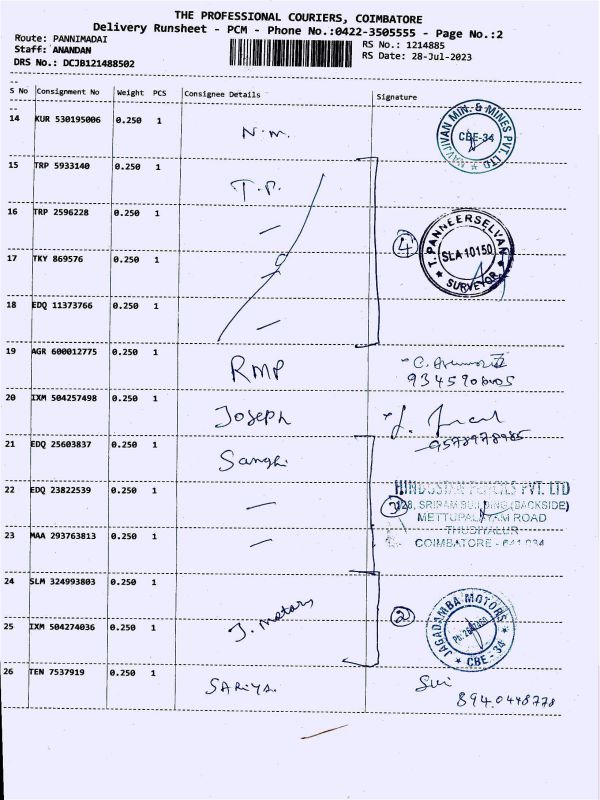 THE PROFESSIONAL COURIERS, COIMBATORE
Delivery Runsheet - PCM - Phone No.:0422-3505555 - Page No.:2
Route: PANNIMADAI
RS No.: 1214885
Staff: ANANDAN
RS Date: 28-Jul-2023
DRS No.: DCJB121488502
S No Consignment No Weight PCS Consignee Details Signature
14 KUR 530195006 0.250 1 N.M. NAVJIVAN MIN. & MINES PVT. LTD. CBE-34
15 TRP 5933140 0.250 1 T.P.
16 TRP 2596228 0.250 1 —
17 TKY 869576 0.250 1 4 T. PANNEERSELVAN SLA 10150 SURVEYOR
18 EDQ 11373766 0.250 1 —
19 AGR 600012775 0.250 1 RMP
20 IXM 504257498 0.250 1 Joseph
9578978985
21 EDQ 25603837 0.250 1 Sanghi
22 EDQ 23822539 0.250 1 — 3 HINDUSTAN PENCILS PVT. LTD
SRIRAM BUILDING (BACKSIDE)
METTUPALAYAM ROAD
23 MAA 293763813 0.250 1 — THUDIYALUR
COIMBATORE - 641 034
24 SLM 324993803 0.250 1
25 IXM 504274036 0.250 1 J. Motors 2 JAGADAMBA MOTORS CBE - 34
26 TEN 7537919 0.250 1 SARIYA.
8940448778